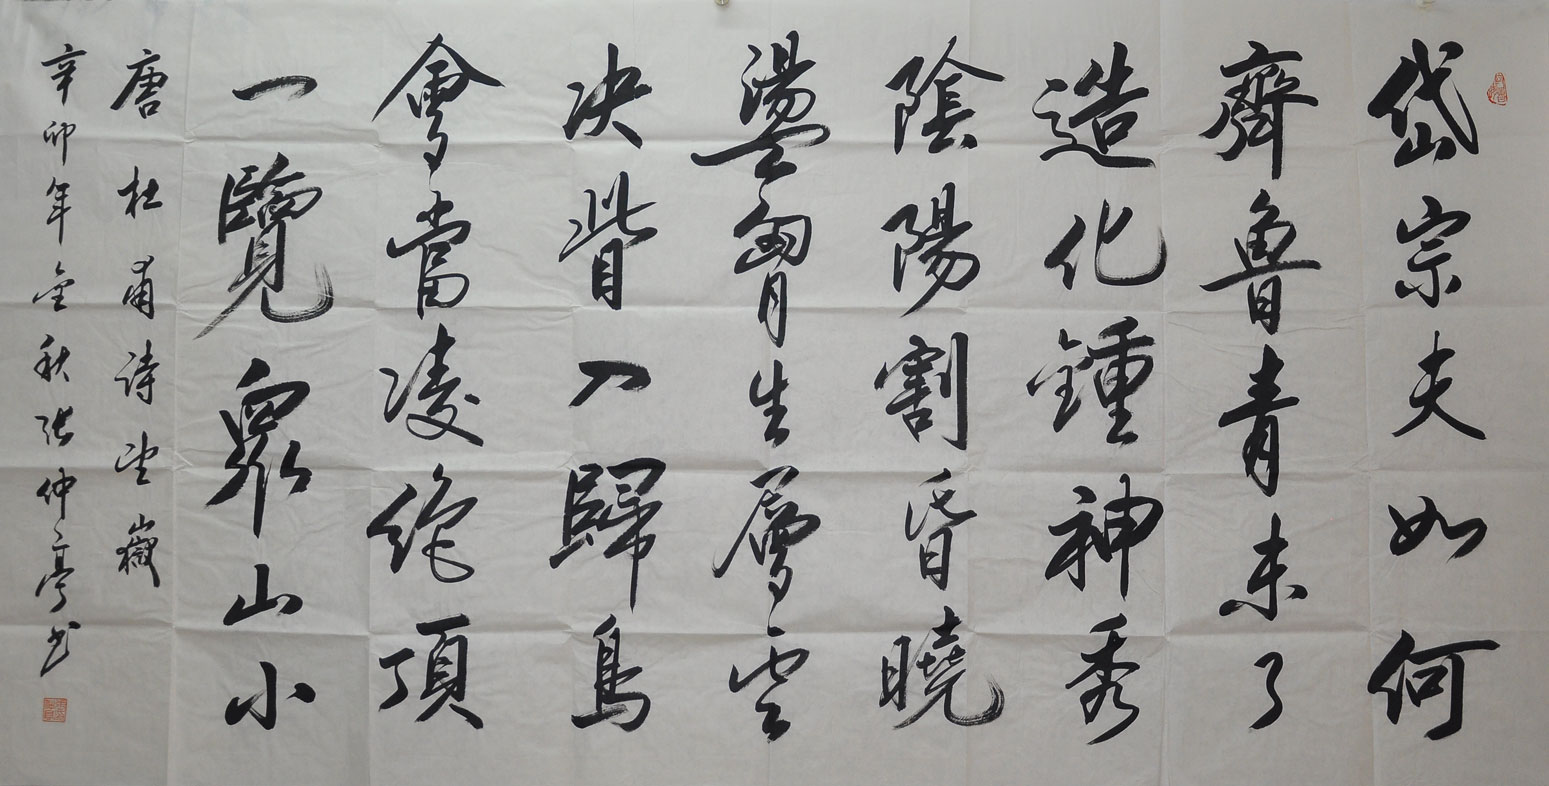 岱宗夫如何
齊魯青未了
造化鍾神秀
陰陽割昏曉
盪胷生層雲
决眥入歸鳥
會當凌絶頂
一覽眾山小
唐杜甫詩望嶽
辛卯年金秋張仲亭书